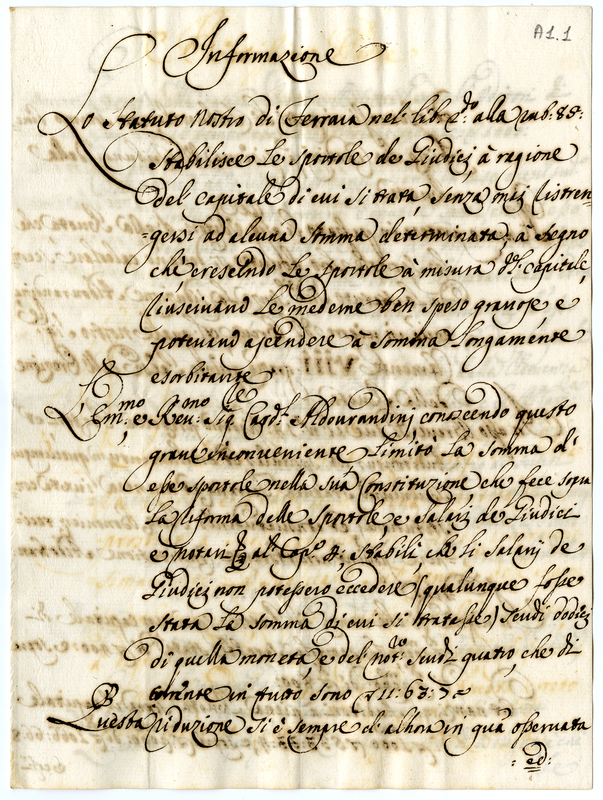 A1.1
Informazione
Lo Statuto Nostro di Ferrara nel lib: 2.do alla rub: 88:
Stabilisce Le sportole de Giudici à ragione
del Capitale di cui si tratta, senza mai ristren-
gersi ad alcuna somma determinata, à segno
chè crescendo Le sportole à misura del capitale
riuscivano Le medeme ben speso gravose e
potevano ascendere à somma longamente
esorbitante
L'Em.mo e Rev.mo Sig. Card.le Aldourandini conoscendo questo
grave inconveniente Limitò La somma di
esse sportole nella sua Constituzione che fece sopra
La riforma delle sportole e salarj de Giudici
e notari al Cap.o 4: Stabilì che li salarj de
Giudici non potessero eccedere (qualunque fosse
stata La somma di cui si tratasse) scudi dodici
di quella moneta, e del not.ro scudi quatro, che di
corrente in tutto sono 11: 63: 7
Questa riduzione si è sempre d'alhora in quà osservata
: ed: